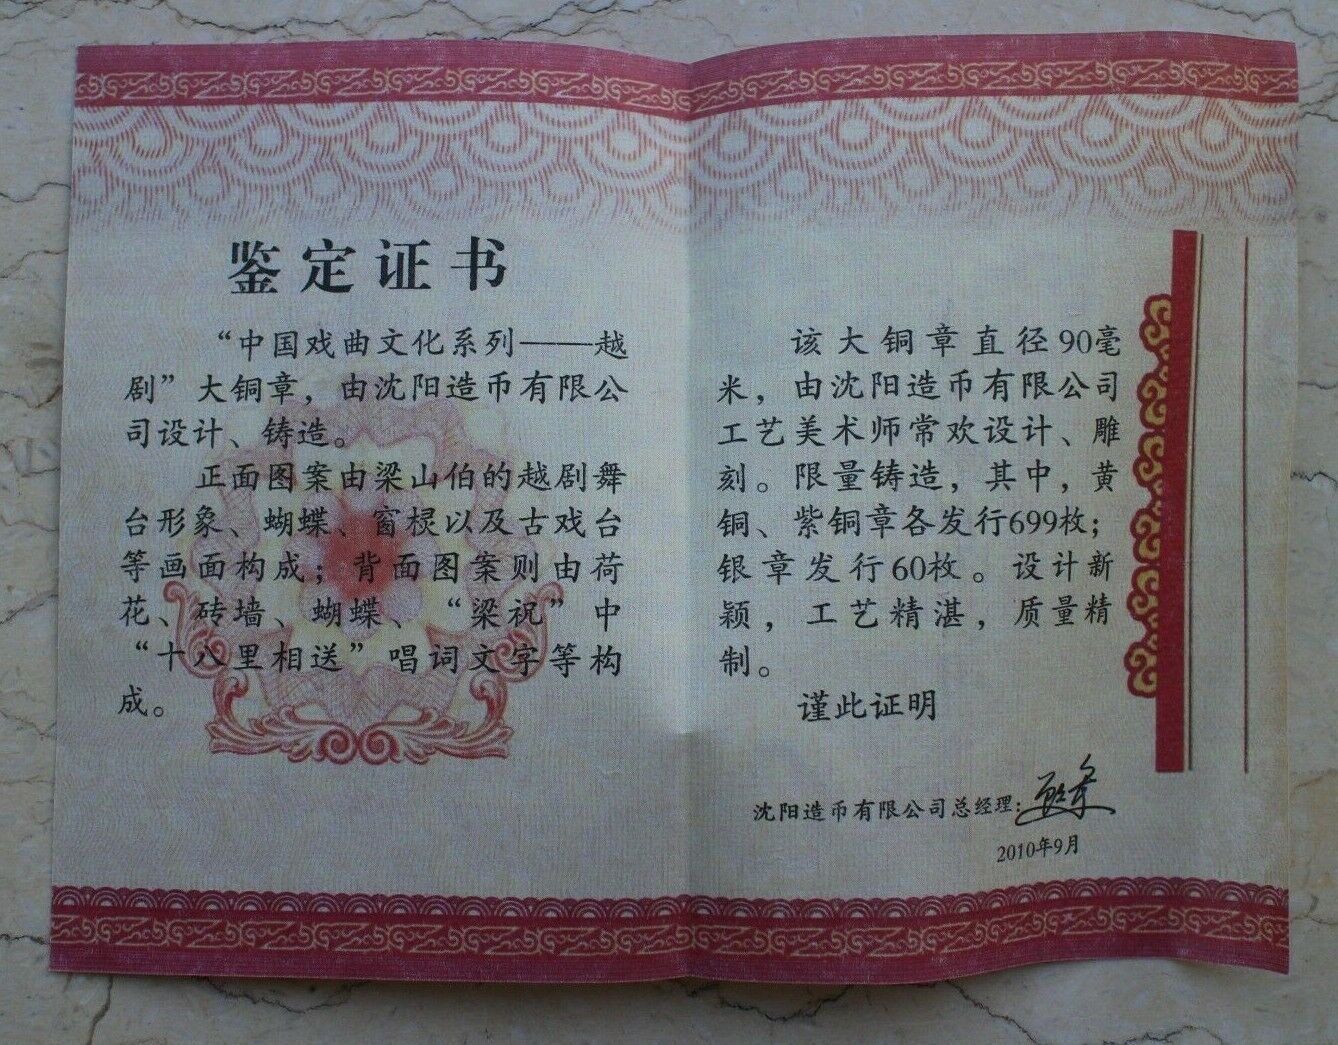 鉴定证书
“中国戏曲文化系列——越
剧”大铜章，由沈阳造币有限公
司设计、铸造。
正面图案由梁山伯的越剧舞
台形象、蝴蝶、窗棂以及古戏台
等画面构成；背面图案则由荷
花、砖墙、蝴蝶、“梁祝”中
“十八里相送”唱词文字等构
成。
该大铜章直径90毫
米，由沈阳造币有限公司
工艺美术师常欢设计、雕
刻。限量铸造，其中，黄
铜、紫铜章各发行699枚；
银章发行60枚。设计新
颖，工艺精湛，质量精
制。
谨此证明
沈阳造币有限公司总经理：
2010年9月